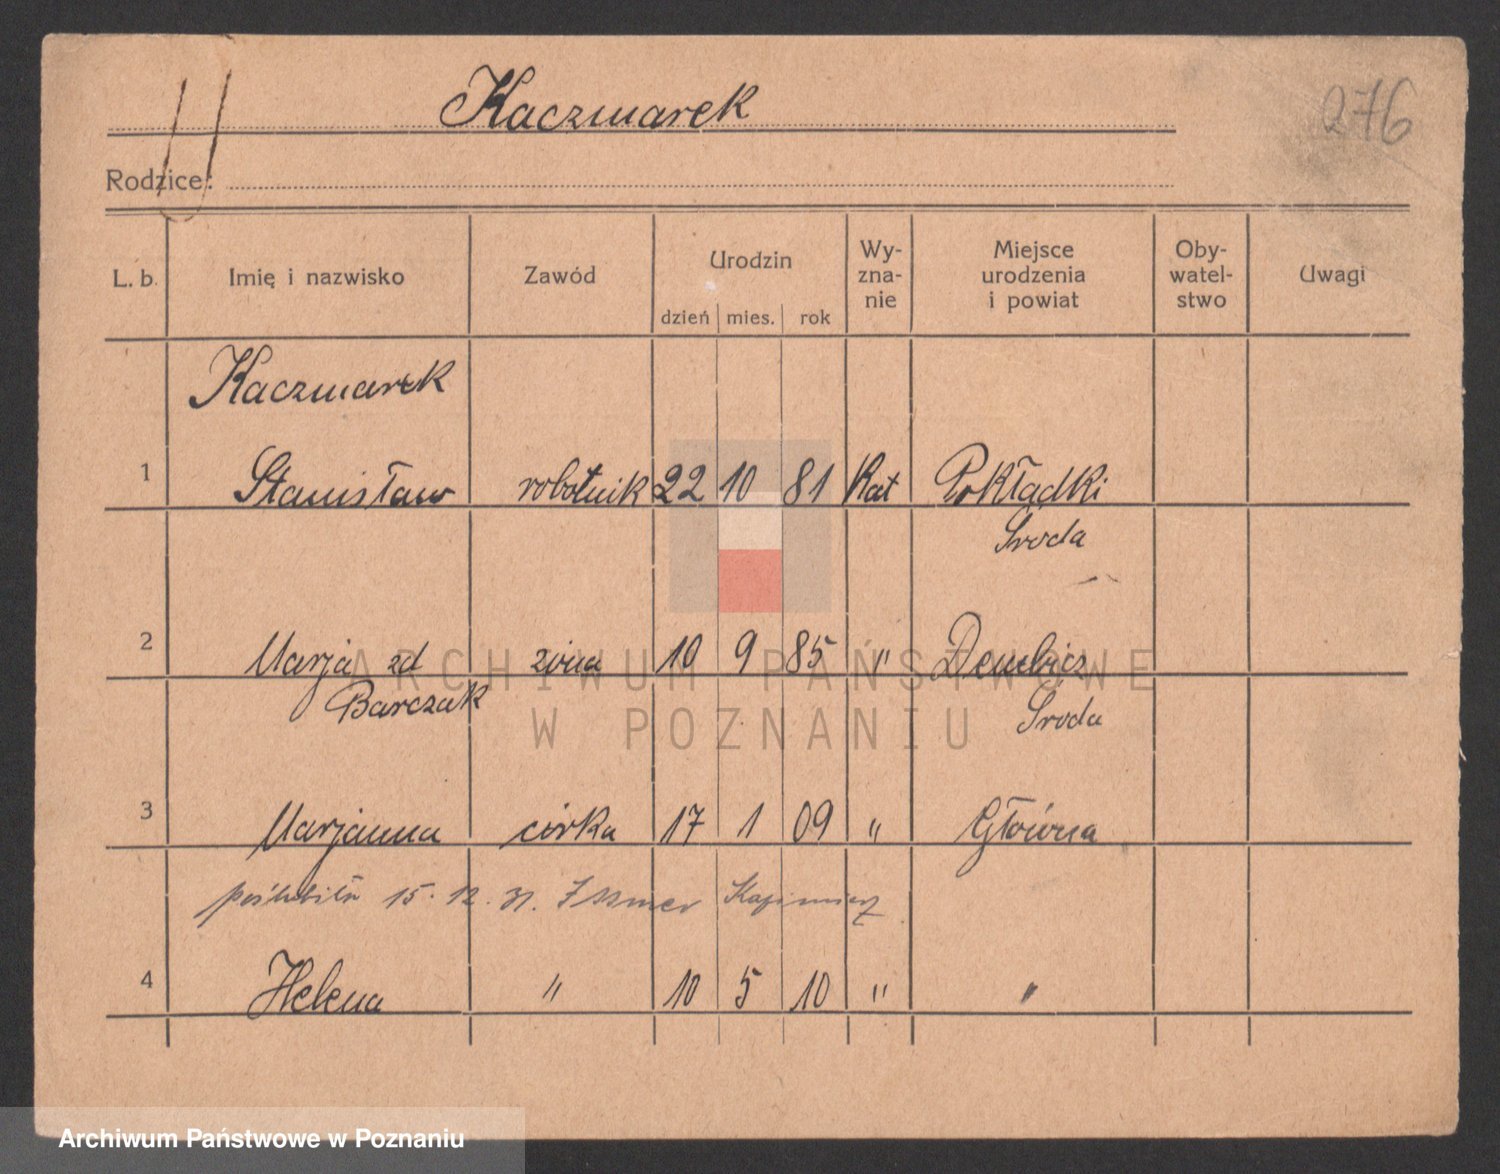 Kaczmarek
276
Rodzice:
L. b. Imię i nazwisko Zawód Urodzin dzień mies. rok Wy-zna-nie Miejsce urodzenia i powiat Oby-watel-stwo Uwagi
Kaczmarek
1 Stanisław robotnik 22 10 81 Kat Pokłądki
Środa
2 Marja zd żona 10 9 85 " Dembicz
Barczak Środa
3 Marjanna córka 17 1 09 " Główna
poślubiła 15. 12. 31. Kazimierz
4 Helena " 10 5 10 " "
ARCHIWUM PAŃSTWOWE
W POZNANIU
Archiwum Państwowe w Poznaniu